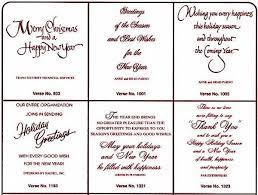 Merry Christmas
and a
Happy New Year
TRANS SECURITY FINANCIAL SERVICES
Verse No. 803
Greetings
of the Season
and Best Wishes
for the
New Year
ANNE and BRAD PARINO
Verse No. 1000
Wishing you every happiness
this holiday season
and throughout
the Coming
Year
ANNE and BRAD PARINO
Verse No. 1001
OUR ENTIRE ORGANIZATION
JOINS IN SENDING
Holiday
Greetings
WITH EVERY GOOD WISH
FOR THE NEW YEAR
Verse No. 1193
THE YEAR END BRINGS
NO GREATER PLEASURE THAN THE
OPPORTUNITY TO EXPRESS TO YOU
SEASON'S GREETINGS AND GOOD WISHES.
May your holidays
and New Year
be filled with
happiness
Verse No. 1301
There is no time
more fitting to say
"Thank You"
and to wish you a
Happy Holiday Season
and a New Year
of health, happiness
and prosperity.
Verse No. 1323